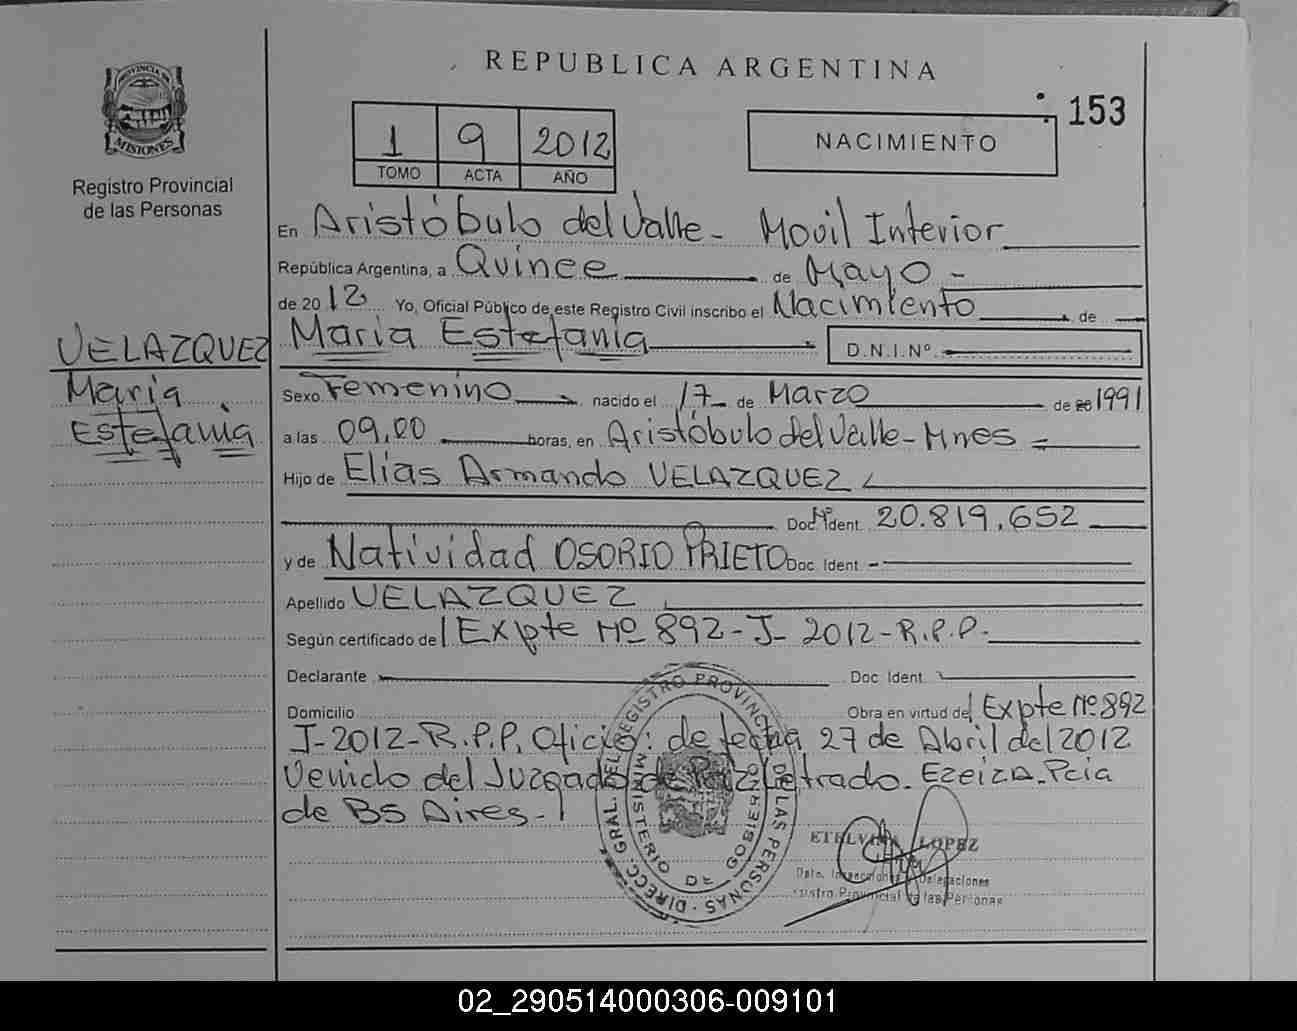 REPUBLICA ARGENTINA
153
PROVINCIA DE
MISIONES
Registro Provincial
de las Personas
1 9 2012
TOMO ACTA AÑO
NACIMIENTO
En Aristóbulo del Valle - Movil Interior
República Argentina, a Quince de Mayo -
de 2012 Yo, Oficial Público de este Registro Civil inscribo el Nacimiento de
Maria Estefanía D.N.I.Nº
VELAZQUEZ
Maria
Estefanía
Sexo Femenino nacido el 17 de Marzo de 20 1991
a las 09,00 horas, en Aristóbulo del Valle - Mnes =
Hijo de Elias Armando VELAZQUEZ
Doc. Nº Ident. 20.819.652
y de Natividad OSORIO PRIETO Doc. Ident. -
Apellido VELAZQUEZ
Según certificado de Expte Nº 892-J-2012-R.P.P.
Declarante Doc. Ident.
Domicilio Obra en virtud de Expte Nº 892
J-2012-R.P.P. Oficio: de fecha 27 de Abril del 2012
Venido del Juzgado de Paz Letrado. Ezeiza. Pcia
de Bs Aires.-
DIRECC. GRAL. DEL REGISTRO PROVINCIAL DE LAS PERSONAS
MINISTERIO DE GOBIERNO
ETELVINA LOPEZ
Dpto. Inspecciones Delegaciones
Registro Provincial de las Personas
02_290514000306-009101